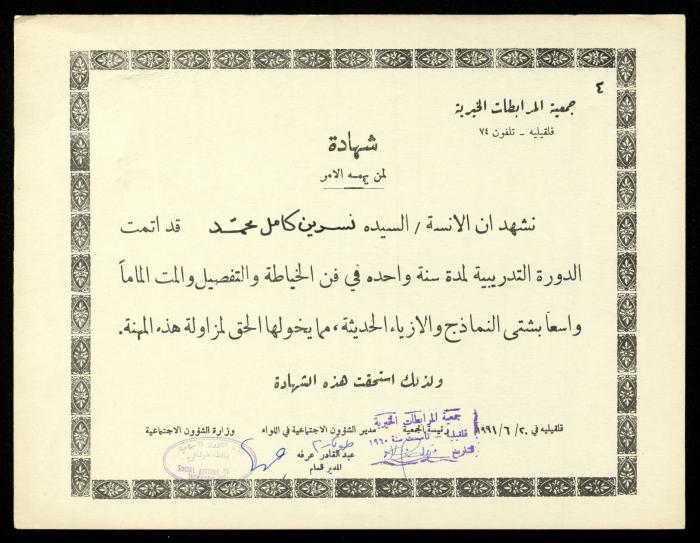 ٤
جمعية المرابطات الخيرية
قلقيليه - تلفون ٧٤
شهادة
لمن يهمه الامر
نشهد ان الانسة / السيده نسرين كامل محمد قد اتمت
الدورة التدريبية لمدة سنة واحده في فن الخياطة والتفصيل والمت الماماً
واسعاً بشتى النماذج والازياء الحديثة، مما يخولها الحق لمزاولة هذه المهنة.
ولذلك استحقت هذه الشهادة
قلقيليه في ٢٠ / ٦ / ١٩٩١ رئيسة الجمعية مدير الشؤون الاجتماعية في اللواء وزارة الشؤون الاجتماعية
جمعية المرابطات الخيرية
قلقيلية - تأسست سنة ١٩٦٠
التاريخ
عبد القادر عرفه
المدير العام
SOCIAL AFFAIRS